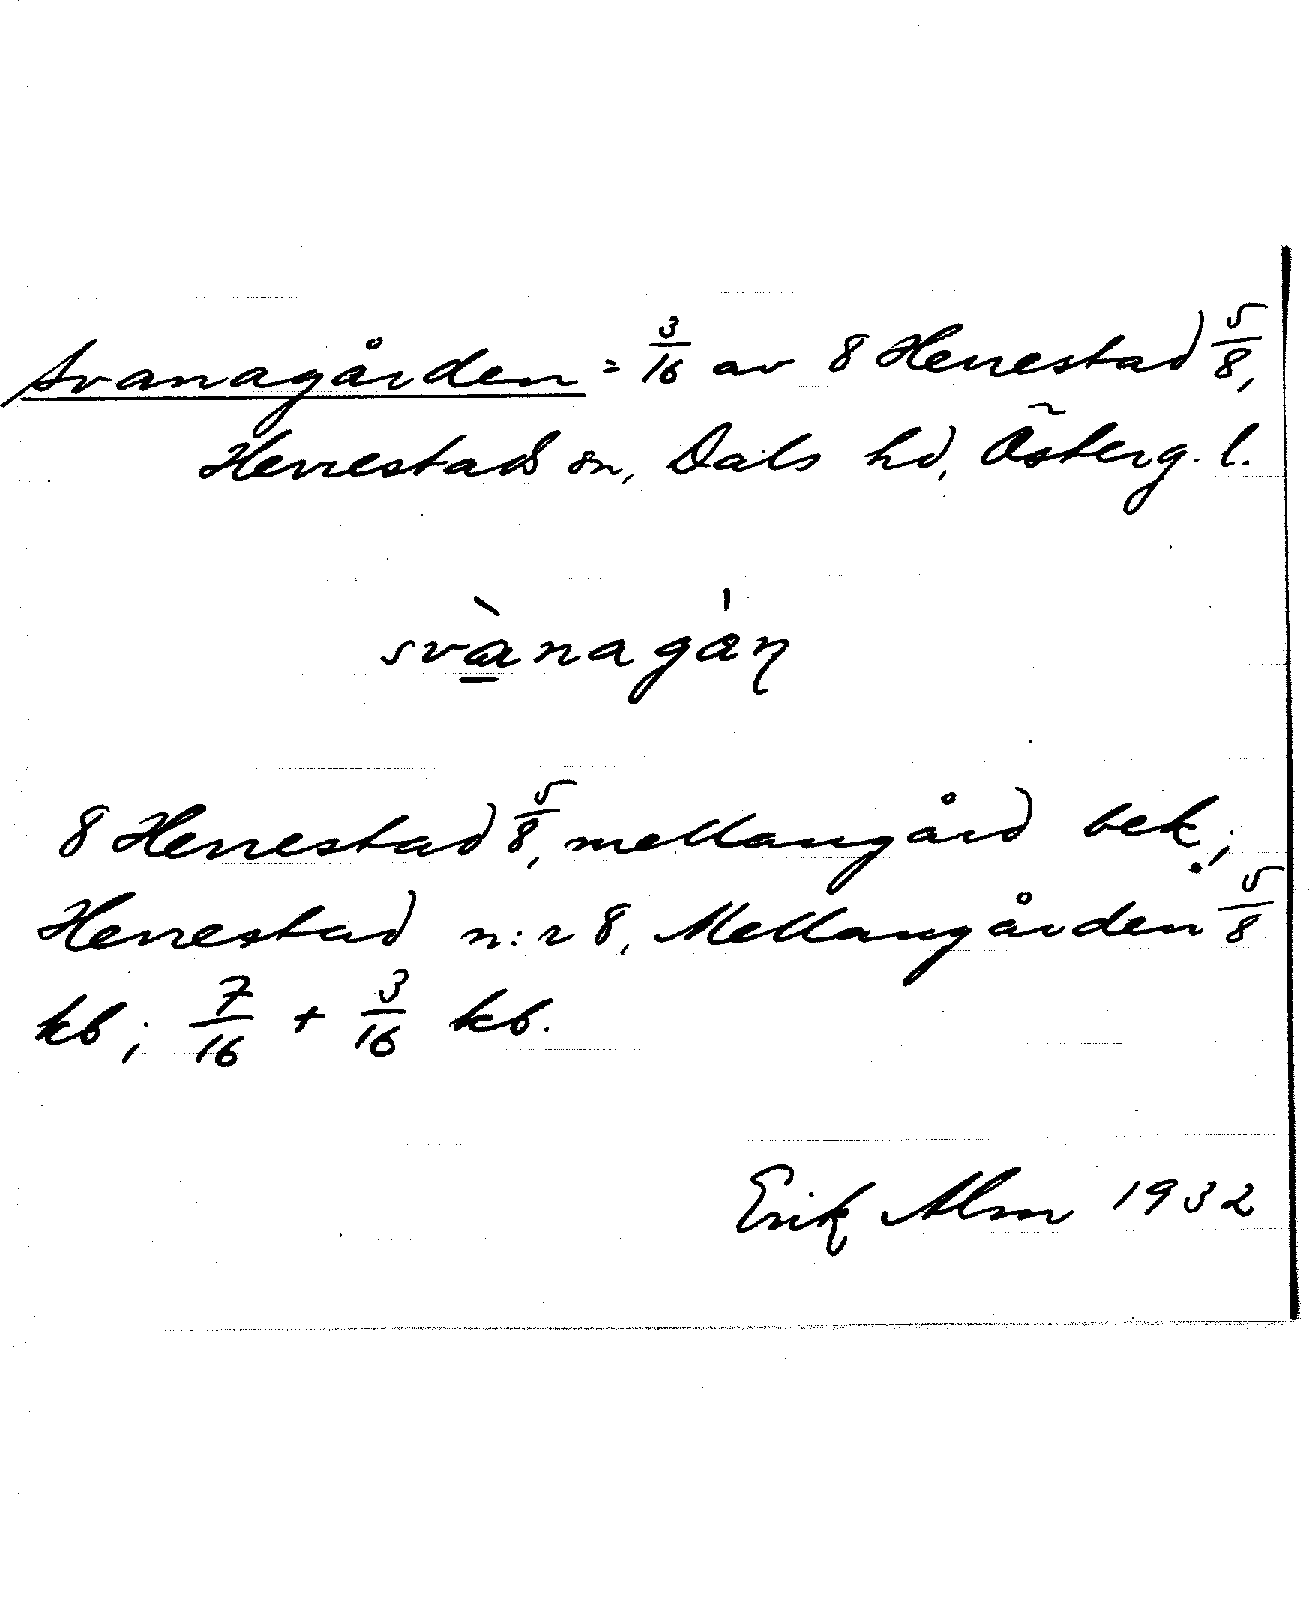 Svanagården = 3/16 av 8 Herrestad 5/8,
Herrestads sn, Dals hd, Österg. l.
svànagán
8 Herrestad 5/8, mellangård bek.;
Herrestad n:r 8, Mellangården 5/8
kb; 7/16 + 3/16 kb.
Erik Alm 1932